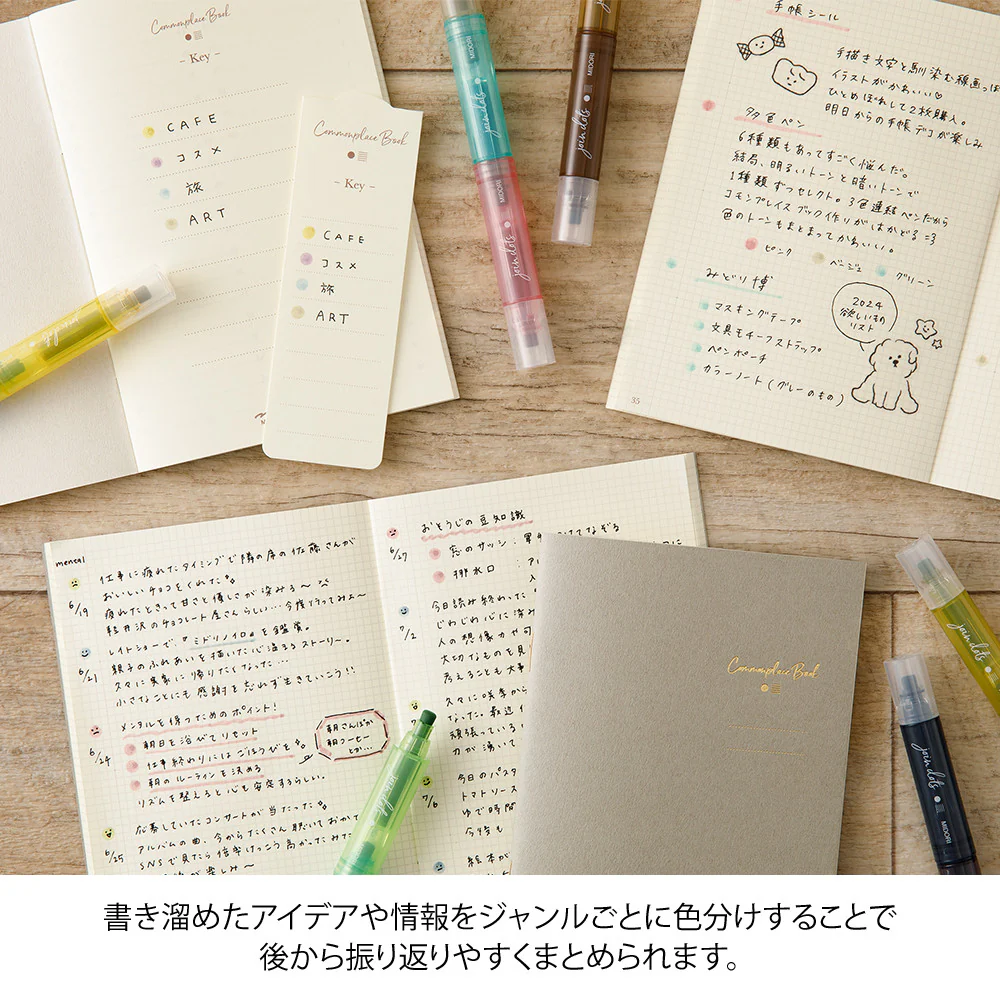 Commonplace Book
– Key –
CAFE
コスメ
旅
ART
Commonplace Book
– Key –
CAFE
コスメ
旅
ART
join dots MIDORI
join dots MIDORI
join dots MIDORI
手帳シール
手描き文字と馴染む線画っぽ
イラストがかわいい♡
ひとめぼれして2枚購入。
明日からの手帳デコが楽しみ
多色ペン
6種類もあってすごく悩んだ。
結局、明るいトーンと暗いトーンで
1種類ずつセレクト。3色連結ペンだから
コモンプレイスブック作りがはかどる =3
色のトーンもまとまってかわいい。
ピンク ベージュ グリーン
みどり博
マスキングテープ
文具モチーフストラップ
ペンポーチ
カラーノート(グレーのもの)
2024
欲しいもの
リスト
35
mental
6/19
仕事に疲れたタイミングで隣の席の佐藤さんが
おいしいチョコをくれた
疲れたときって甘さと優しさが染みる〜
軽井沢のチョコレート屋さんらしい…今度行ってみよ〜
6/21
レイトショーで、『ミドリノイロ』を鑑賞。
親子のふれあいを描いた心温まるストーリー。
久々に実家に帰りたくなった…
小さなことにも感謝を忘れず生きていこう!!
6/24
メンタルを保つためのポイント!
朝日を浴びてリセット
仕事終わりにはごほうびを
朝のルーティンを決める
リズムを整えると心も安定するらしい。
朝さんぽか
朝コーヒー
とか…
6/25
応募していたコンサートが当たった
アルバムの曲、今からたくさん聴いておかな
SNSで見たら倍率けっこう高かったみた
おそうじの豆知識
6/27
窓のサッシ:
排水口:
7/2
今日読み終わった
じわじわ心に沁み
人の想像力や可
大切なものを見
考えることも大事
久々に味季から
なった。最近
頑張っている
力が湧いて
7/6
今日のパスタ
トマトソース
ゆで時間
今時も
絵本が
Commonplace Book
join dots
join dots MIDORI
書き溜めたアイデアや情報をジャンルごとに色分けすることで
後から振り返りやすくまとめられます。